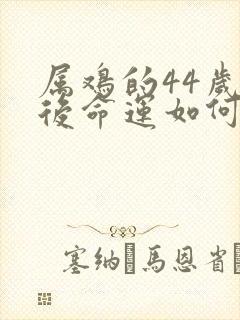 属鸡的44歲
後命運如何
塞纳·馬恩省